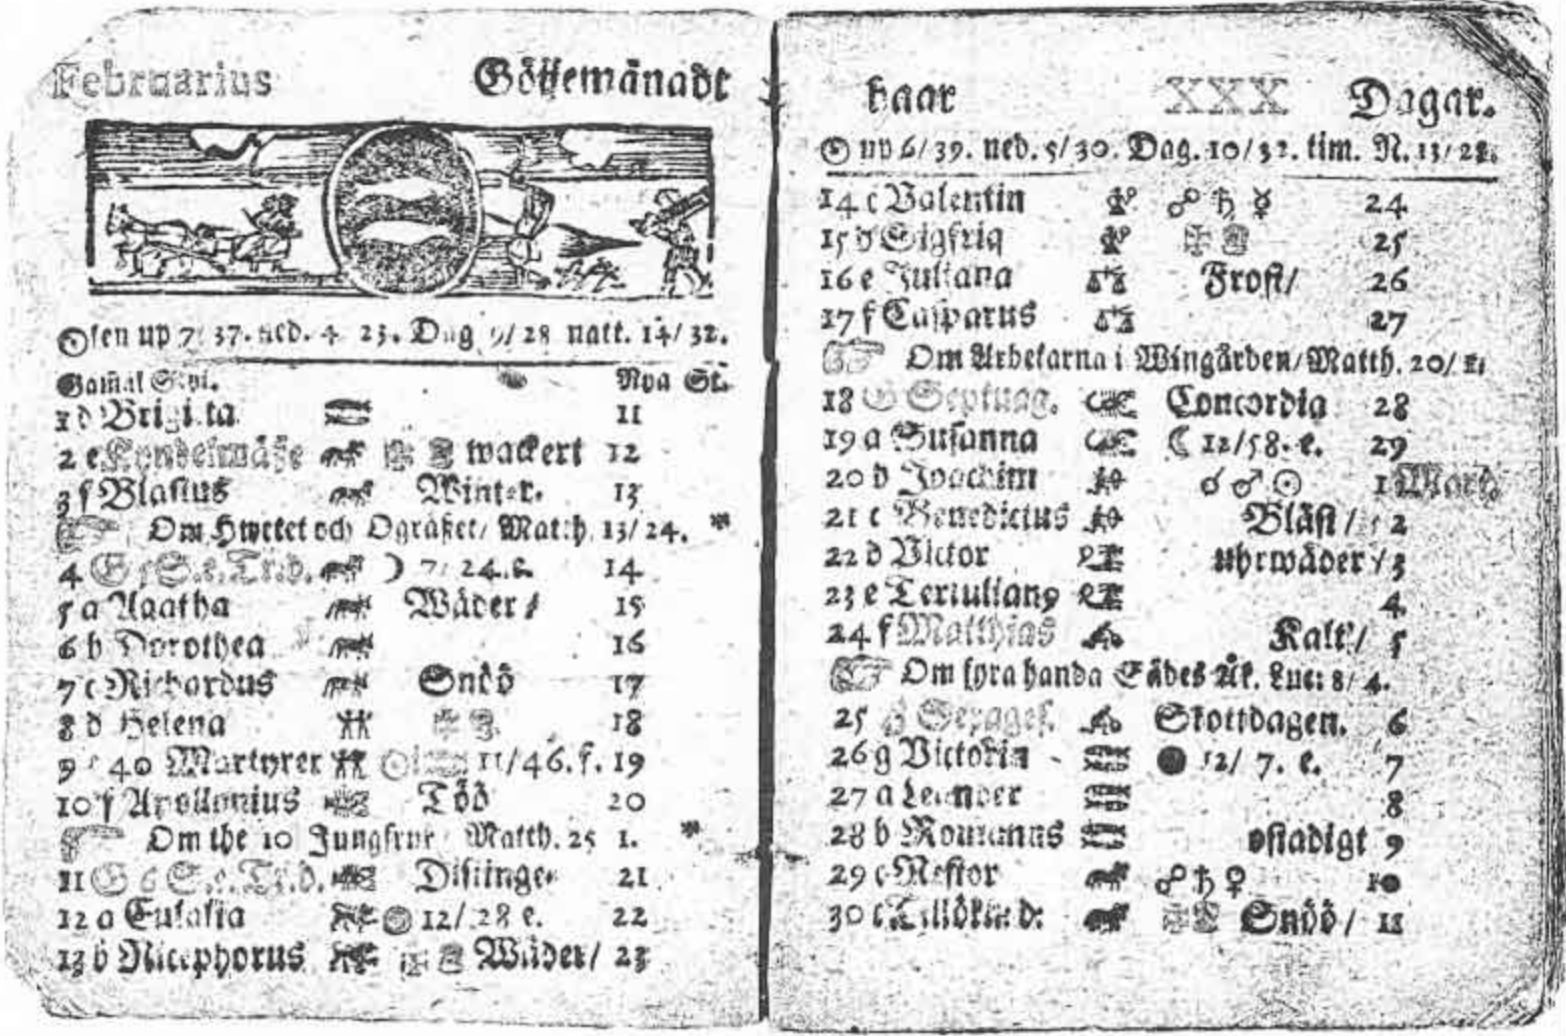 Februarius Göijemånadt
up 7/37. ned. 4 23. Dag 9/28 natt. 14/32.
Gam̃al Nya St.
1 d Brigi ta 11
2 e Kyndelmäße wackert 12
3 f Blasius Winter. 13
Om Hwetet och Ogräset/ Matth. 13/24. *
4 G 5 S. e. Tr. d. ☽ 7/ 24. 14
5 a Agatha Wäder/ 15
6 b Dorothea 16
7 c Richardus Snöö 17
8 d Helena 18
9 e 40 Martyrer 11/46. f. 19
10 f Apollonius Töö 20
Om the 10 Jungfrur/ Matth. 25 1. *
11 G 6 S. e. Tr. d. Distinge 21
12 a Eulalia 12/28 e. 22
13 b Nicephorus Wäder/ 23
haar XXX Dagar.
☉ up 6/39. ned. 5/30. Dag. 10/32. tim. N. 13/28.
14 c Valentin ☍ ♄ ☿ 24
15 d Sigfrid 25
16 e Juliana Frost/ 26
17 f Casparus 27
Om Arbetarna i Wingården/ Matth. 20/1.
18 G Septuag. Concordia 28
19 a Susanna ☾ 12/58. e. 29
20 b Joachim ☌ ♂ ☉ 1 Mart.
21 c Benedictus Bläst/ 2
22 d Victor uhrwäder/ 3
23 e Tertulian9 4
24 f Matthias Kalt/ 5
Om fyra handa Sädes Åk. Luc: 8/ 4.
25 Sexages. Skottdagen. 6
26 g Victoria ● 12/ 7. e. 7
27 a Leander 8
28 b Romanus ostadigt 9
29 c Nestor ☍ ♄ ♀ 10
30 Snöö/ 11